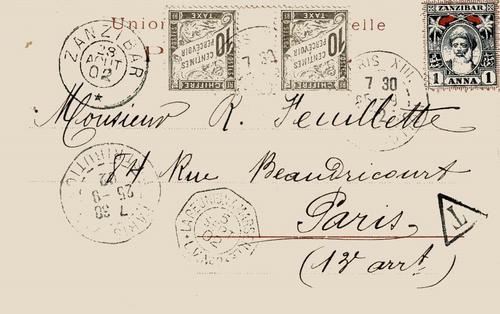 Union
elle
ZANZIBAR
28
AOUT
02
10
CENTIMES
A
PERCEVOIR
TAXE
CHIFFRE
10
CENTIMES
A
PERCEVOIR
TAXE
CHIFFRE
7 30
IS XIII
7 30
ZANZIBAR
1 ANNA 1
Monsieur R. Feuillette
74 Rue Beaudricourt
Paris
(13e arrt)
T
7 30
25 - 9
02
LA REUNION A MARSEILLE
5
02